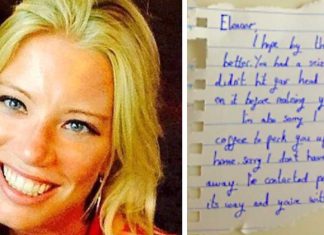 Eleanor,
I hope by th
better. You had a seiz
didn't hit your head
on it before making y
I'm also sorry I
coffee to perk you up
home. Sorry I don't hav
away. I've contacted p
its way and you're wit